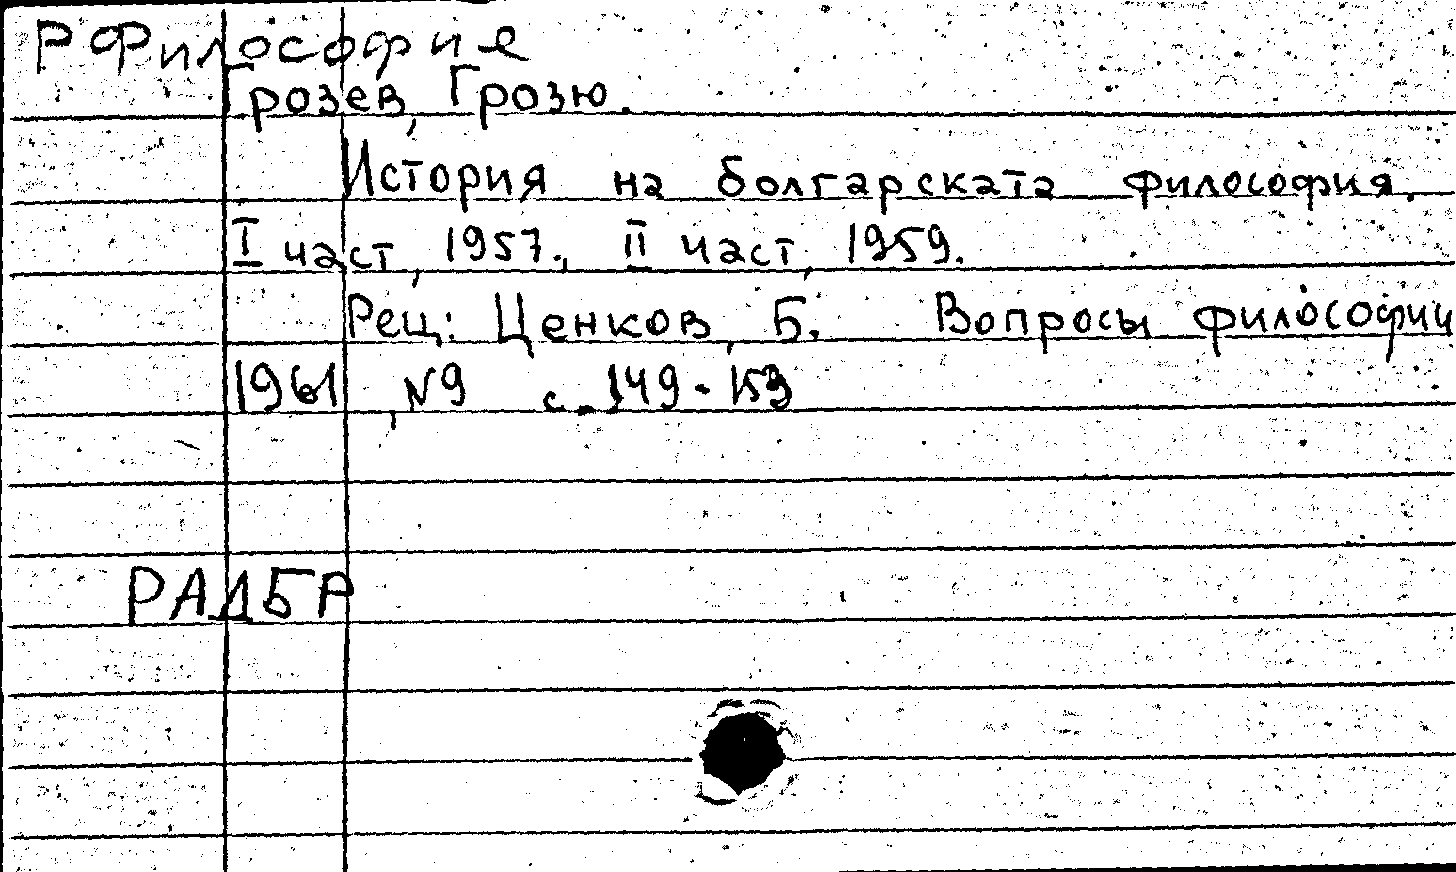 Р Философие
Грозев, Грозю.
История на болгарската философия.
I част, 1957., II част, 1959.
Рец: Ценков, Б. Вопросы философии
1961, N9 с. 149-153
РАДБР